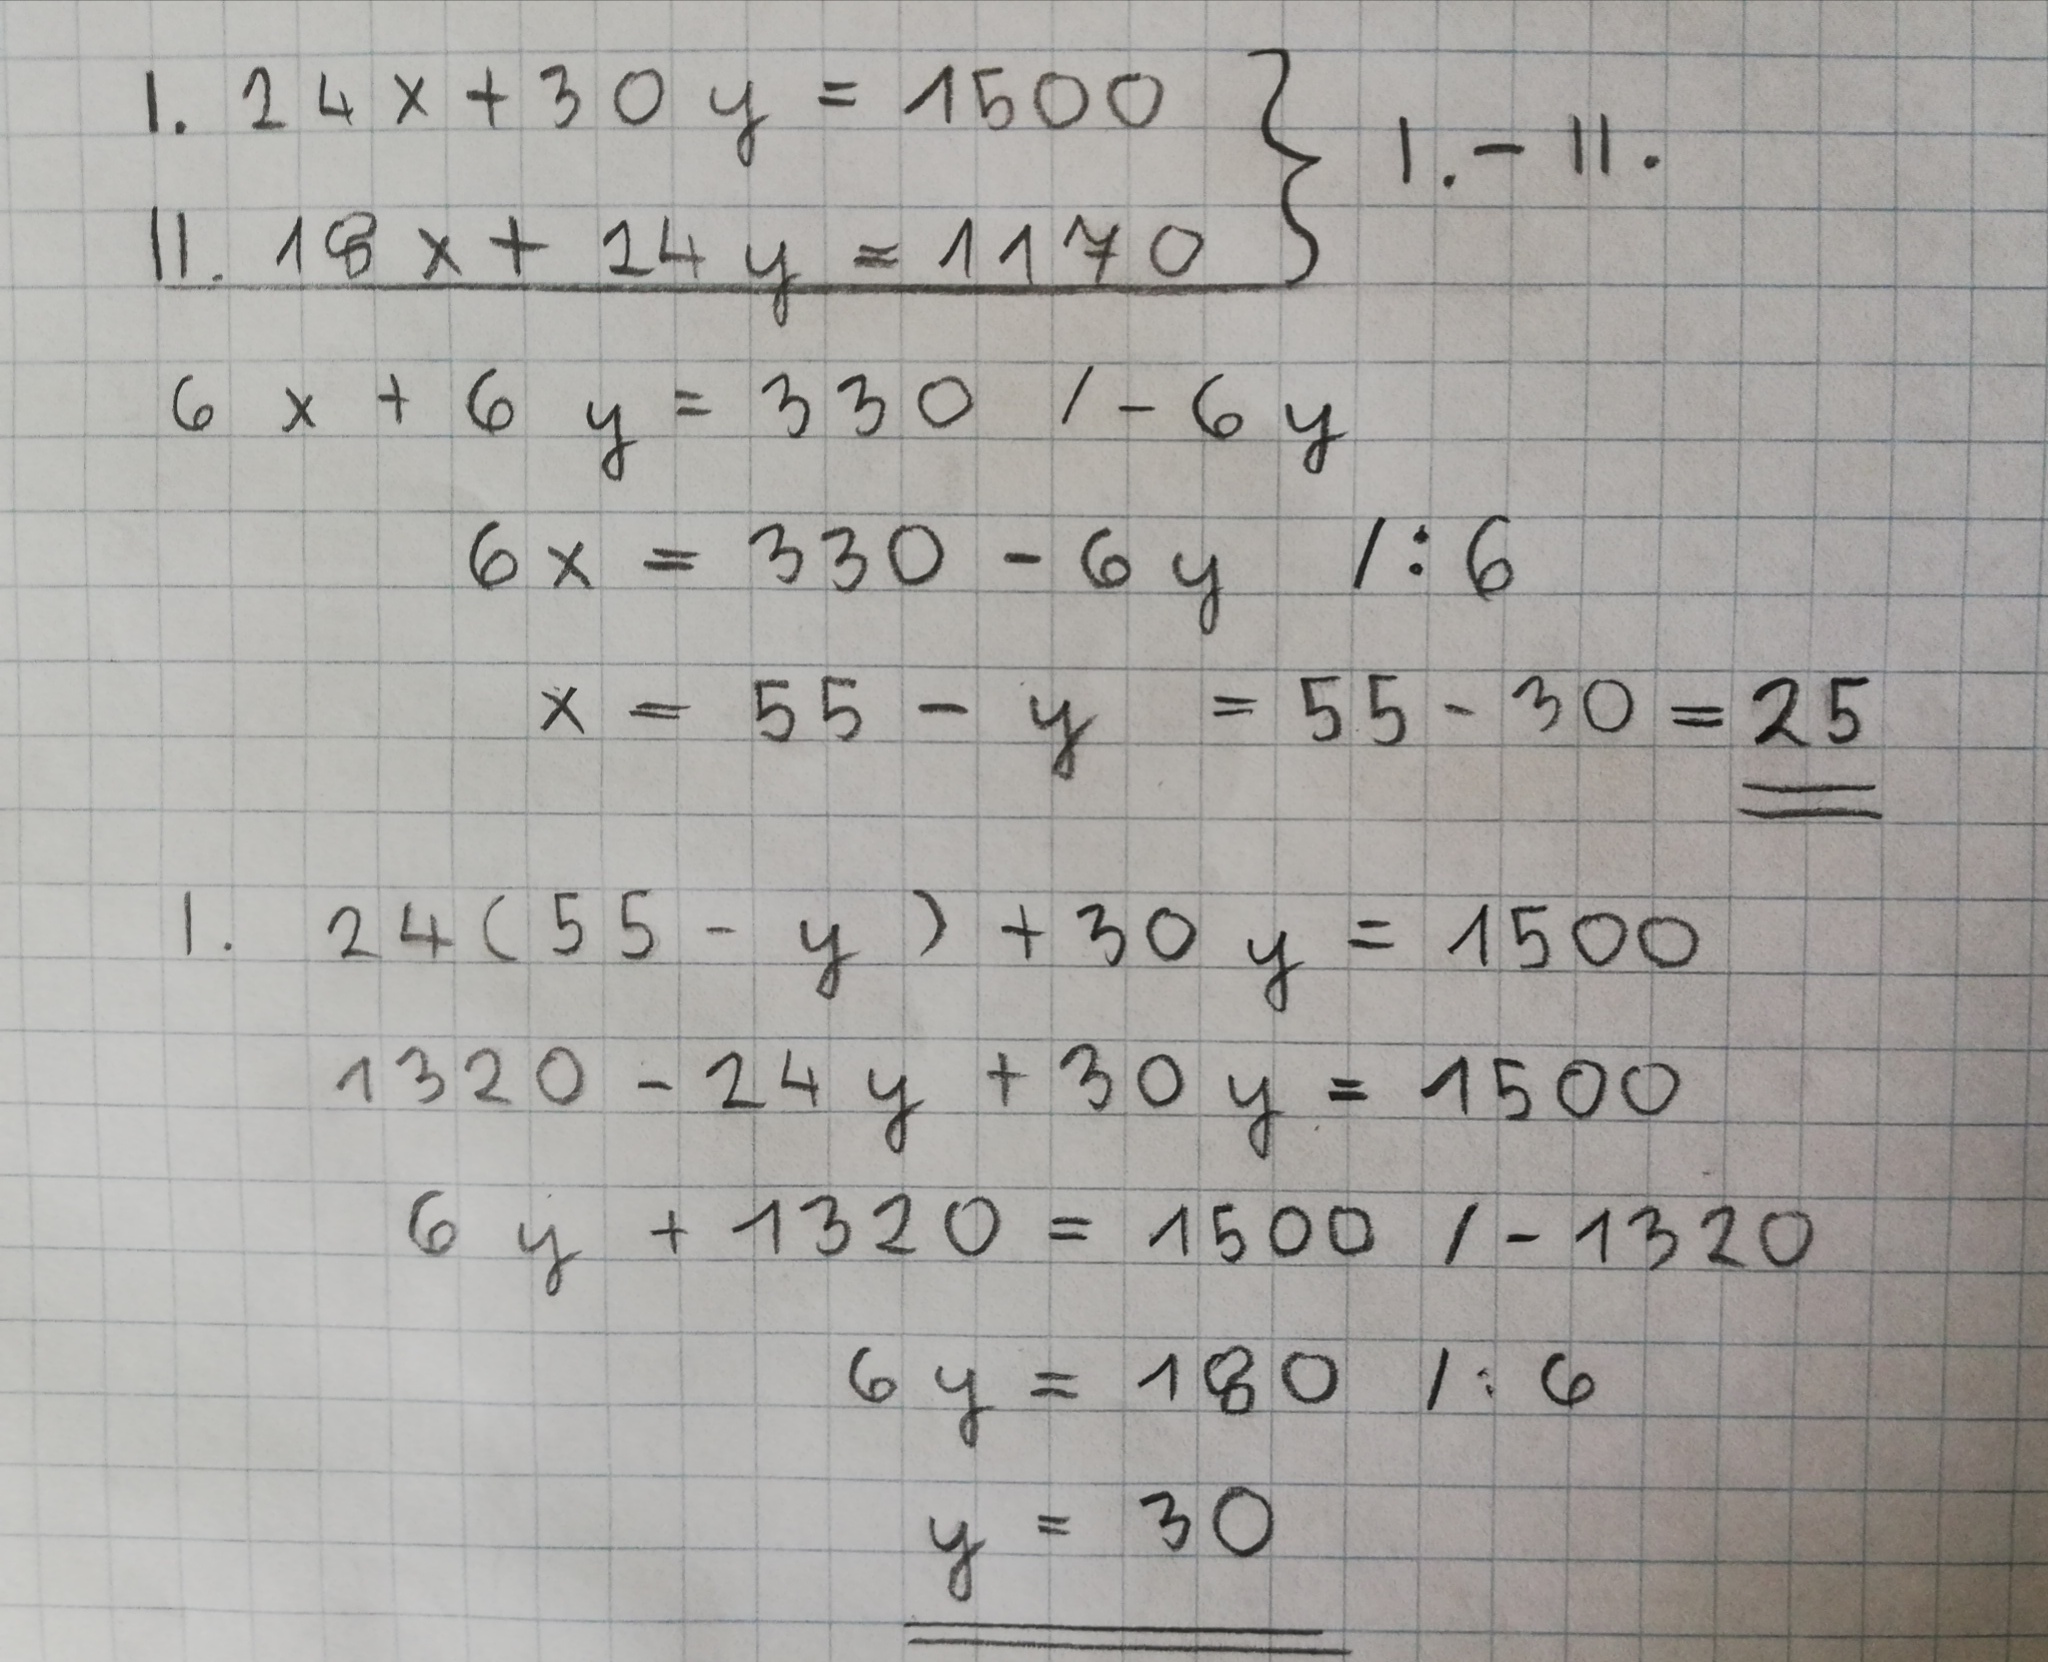 I. 24x + 30y = 1500 } I. - II.
II. 18x + 24y = 1170
6x + 6y = 330 / - 6y
6x = 330 - 6y / : 6
x = 55 - y = 55 - 30 = 25
I. 24(55 - y) + 30y = 1500
1320 - 24y + 30y = 1500
6y + 1320 = 1500 / - 1320
6y = 180 / : 6
y = 30